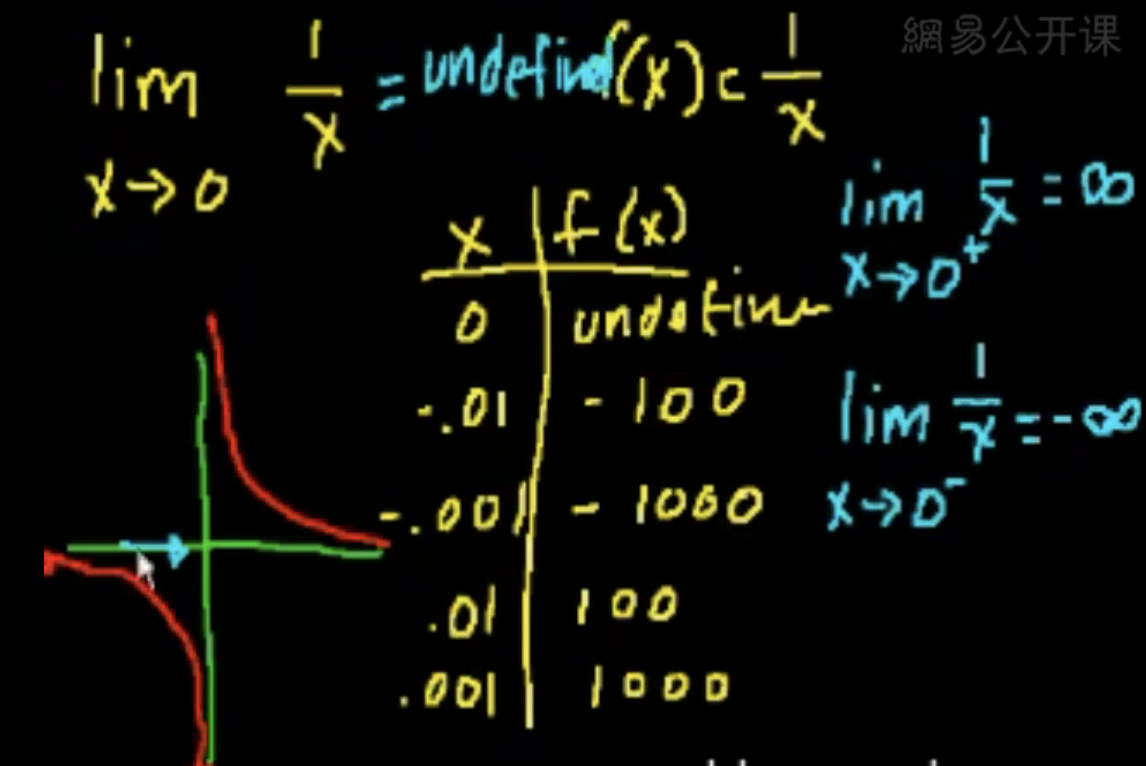 網易公开课
lim 1/x = undefined f(x) = 1/x
x→0
x f(x)
0 undefine
-.01 -100
-.001 -1000
.01 100
.001 1000
lim 1/x = ∞
x→0⁺
lim 1/x = -∞
x→0⁻